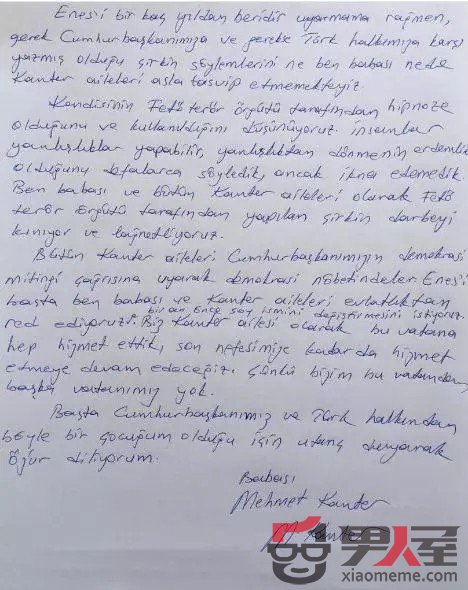 Enes'i bir kaç yıldan beridir uyarmama rağmen,
gerek Cumhurbaşkanımıza ve gerekse Türk halkımıza karşı
yazmış olduğu çirkin söylemlerini ne ben babası nede
Kanter aileleri asla tasvip etmemekteyiz.
Kendisinin Fetö terör örgütü tarafından hipnoze
olduğunu ve kullanıldığını düşünüyoruz. insanlar
yanlışlıklar yapabilir, yanlışlıktan dönmenin erdemlik
olduğunu defalarca söyledik, ancak ikna edemedik.
Ben babası ve bütün Kanter aileleri olarak Fetö
terör örgütü tarafından yapılan çirkin darbeyi
kınıyor ve lağnetliyoruz.
Bütün Kanter aileleri Cumhurbaşkanımızın demokrasi
mitingi çağrısına uyarak demokrasi nöbetindeler. Enes'i
başta ben babası ve Kanter aileleri evlatlıktan
bir an önce soy ismini değiştirmesini istiyoruz.
red ediyoruz. Biz Kanter ailesi olarak bu vatana
hep hizmet ettik, son nefesimize kadar da hizmet
etmeye devam edeceğiz. Çünkü bizim bu vatandan
başka vatanımız yok.
Başta Cumhurbaşkanımız ve Türk halkından
böyle bir çocuğum olduğu için utanç duyarak
özür diliyorum.
Babası
Mehmet Kanter
M Kanter
男人屋
xiaomeme.com